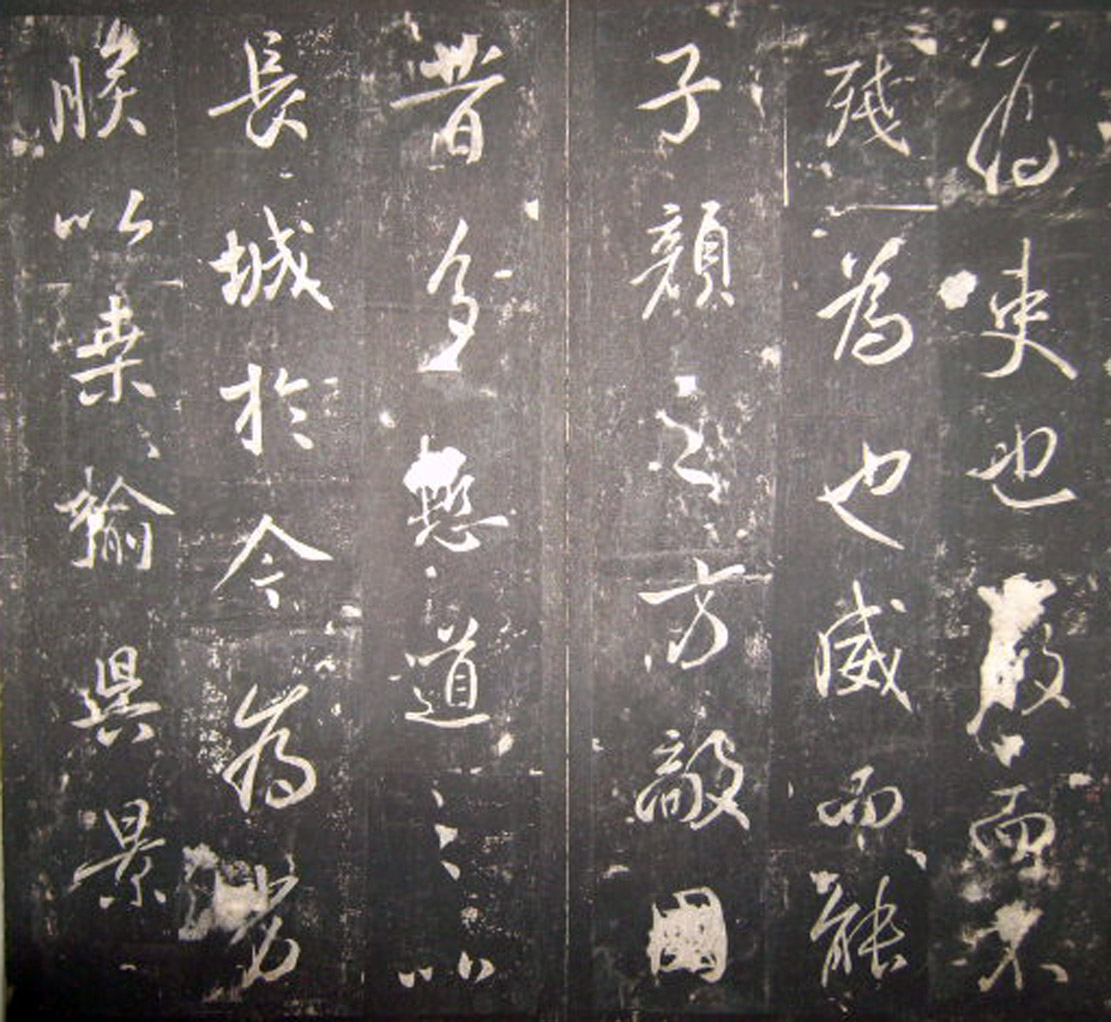 為吏也嚴而不
殘為也威而能
子顏之方敵國
昔多慙道之以
長城於今為劣
朕以桒榆異景